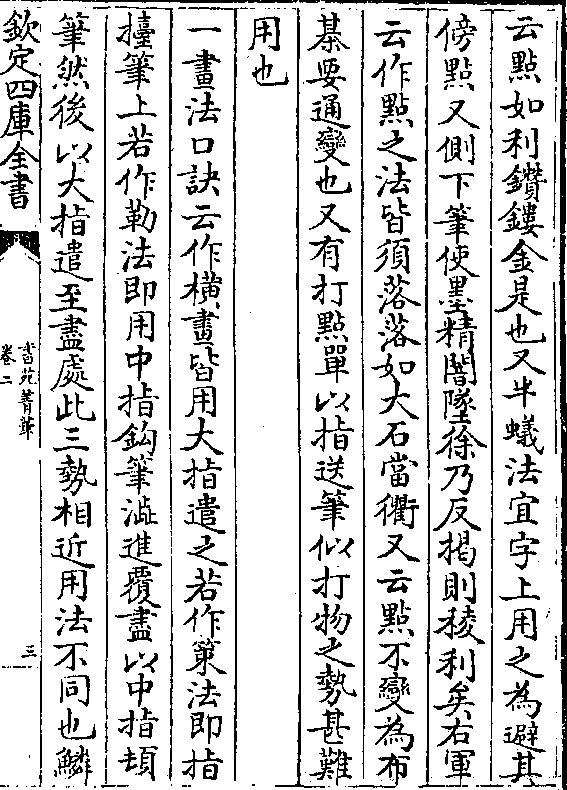 云點如利鑽鏤金是也又半蟻法宜字上用之為避其
傍點又側下筆使墨精闇墜徐乃反揭則稜利矣右軍
云作點之法皆須落落如大石當衢又云點不變為布
棊要通變也又有打點單以指送筆似打物之勢甚難
用也
一畫法口訣云作橫畫皆用大指遣之若作策法即指
擡筆上若作勒法即用中指鈎筆澁進覆畫以中指頓
筆然後以大指遣至盡處此三勢相近用法不同也鱗
欽定四庫全書
書苑菁華
卷二
三